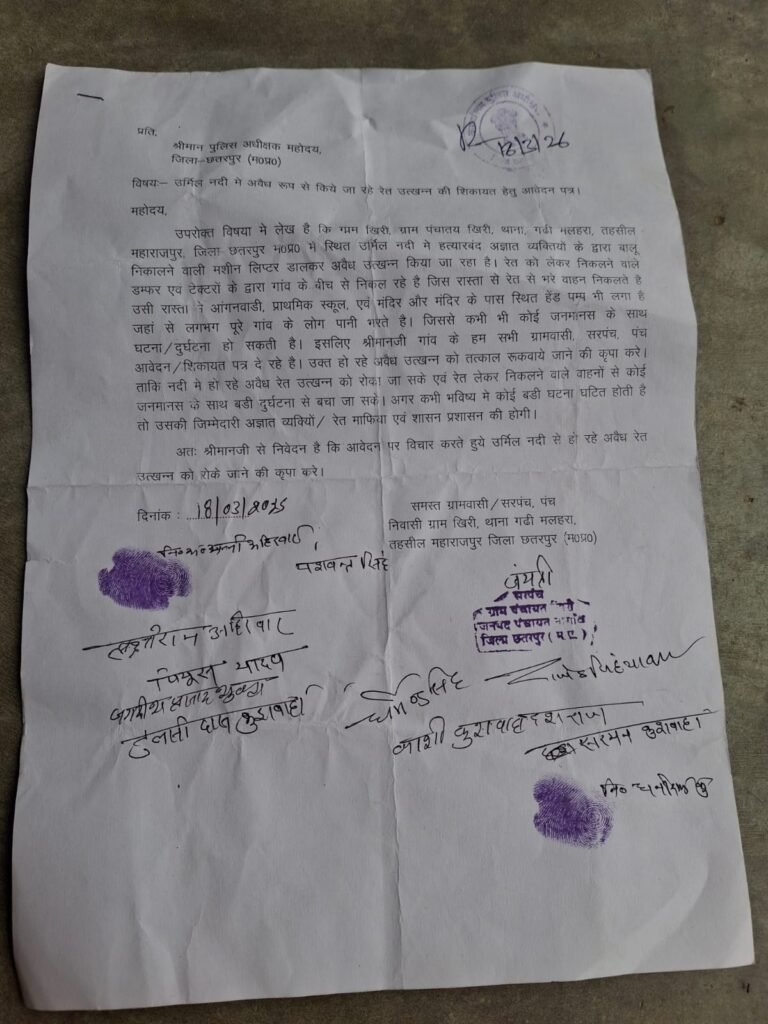 18/3/26
प्रति,
श्रीमान पुलिस अधीक्षक महोदय,
जिला–छतरपुर (म०प्र०)
विषयः– उर्मिल नदी मे अवैध रूप से किये जा रहे रेत उत्खन्न की शिकायत हेतु आवेदन पत्र।
महोदय,
उपरोक्त विषया मे लेख है कि ग्राम खिरी, ग्राम पंचातय खिरी, थाना, गढी मलहरा, तहसील
महाराजपुर, जिला छतरपुर म०प्र० मे स्थित उर्मिल नदी मे हत्यारबंद अज्ञात व्यक्तियों के द्वारा बालू
निकालने वाली मशीन लिप्टर डालकर अवैध उत्खन्न किया जा रहा है। रेत को लेकर निकलने वाले
डम्फर एवं टेक्टरों के द्वारा गांव के बीच से निकल रहे है जिस रास्ता से रेत से भरे वाहन निकलते है
उसी रास्ता मे आंगनवाडी, प्राथमिक स्कूल, एवं मंदिर और मंदिर के पास स्थित हेंड पम्प भी लगा है
जहां से लगभग पूरे गांव के लोग पानी भरते है। जिससे कभी भी कोई जनमानस के साथ
घटना/दुर्घटना हो सकती है। इसलिए श्रीमानजी गांव के हम सभी ग्रामवासी, सरपंच, पंच
आवेदन/शिकायत पत्र दे रहे है। उक्त हो रहे अवैध उत्खन्न को तत्काल रूकवाये जाने की कृपा करे।
ताकि नदी मे हो रहे अवैध रेत उत्खन्न को रोका जा सके एवं रेत लेकर निकलने वाले वाहनों से कोई
जनमानस के साथ बडी दुर्घटना से बचा जा सके। अगर कभी भविष्य मे कोई बडी घटना घटित होती है
तो उसकी जिम्मेदारी अज्ञात व्यक्तियों/ रेत माफिया एवं शासन प्रशासन की होगी।
अतः श्रीमानजी से निवेदन है कि आवेदन पर विचार करते हुये उर्मिल नदी से हो रहे अवैध रेत
उत्खन्न को रोके जाने की कृपा करे।
दिनांक : 18/03/2025
समस्त ग्रामवासी/सरपंच, पंच
निवासी ग्राम खिरी, थाना गढी मलहरा,
तहसील महाराजपुर जिला छतरपुर (म०प्र०)
सरपंच
ग्राम पंचायत
जनपद पंचायत
जिला छतरपुर (म.प्र.)
यादव
तुलसी दास कुशवाहा
काशी कुशवाहा देशराज
सरमन कुशवाहा